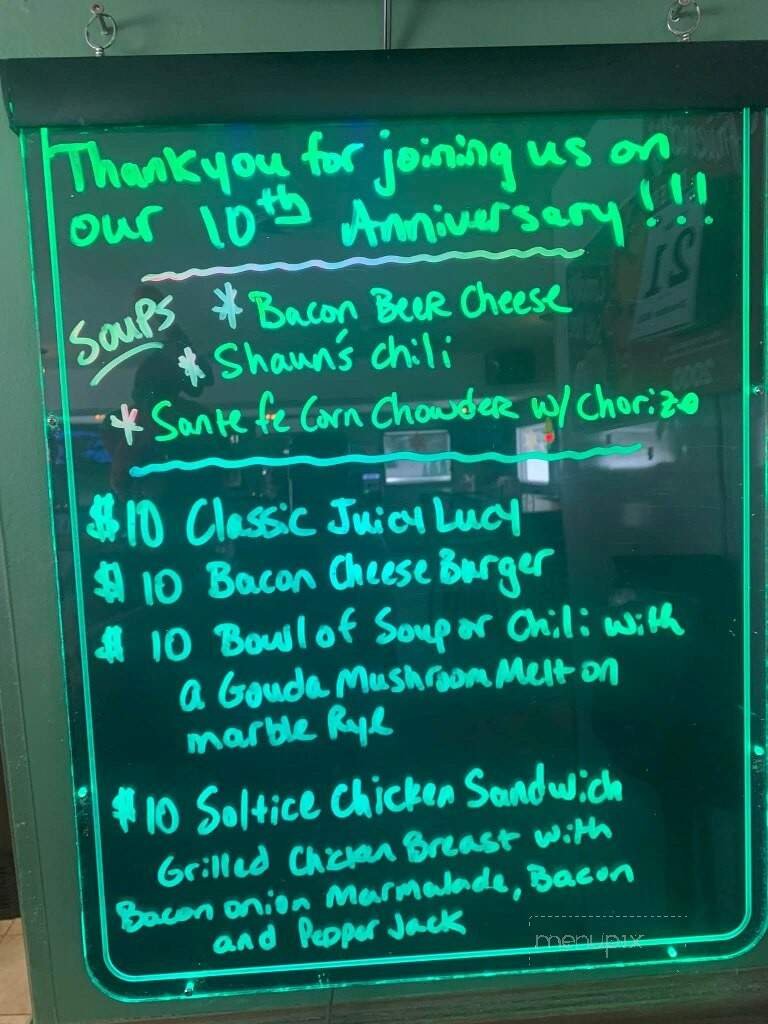 Thankyou for joining us on
our 10th Anniversary!!!
Soups * Bacon Beer Cheese
* Shaun's Chili
* Sante fe Corn Chowder w/ Chorizo
$10 Classic Juicy Lucy
$10 Bacon Cheese Burger
$10 Bowl of Soup or Chili with
a Gouda Mushroom Melt on
marble Rye
$10 Soltice Chicken Sandwich
Grilled Chicken Breast with
Bacon onion Marmalade, Bacon
and Pepper Jack
menupix